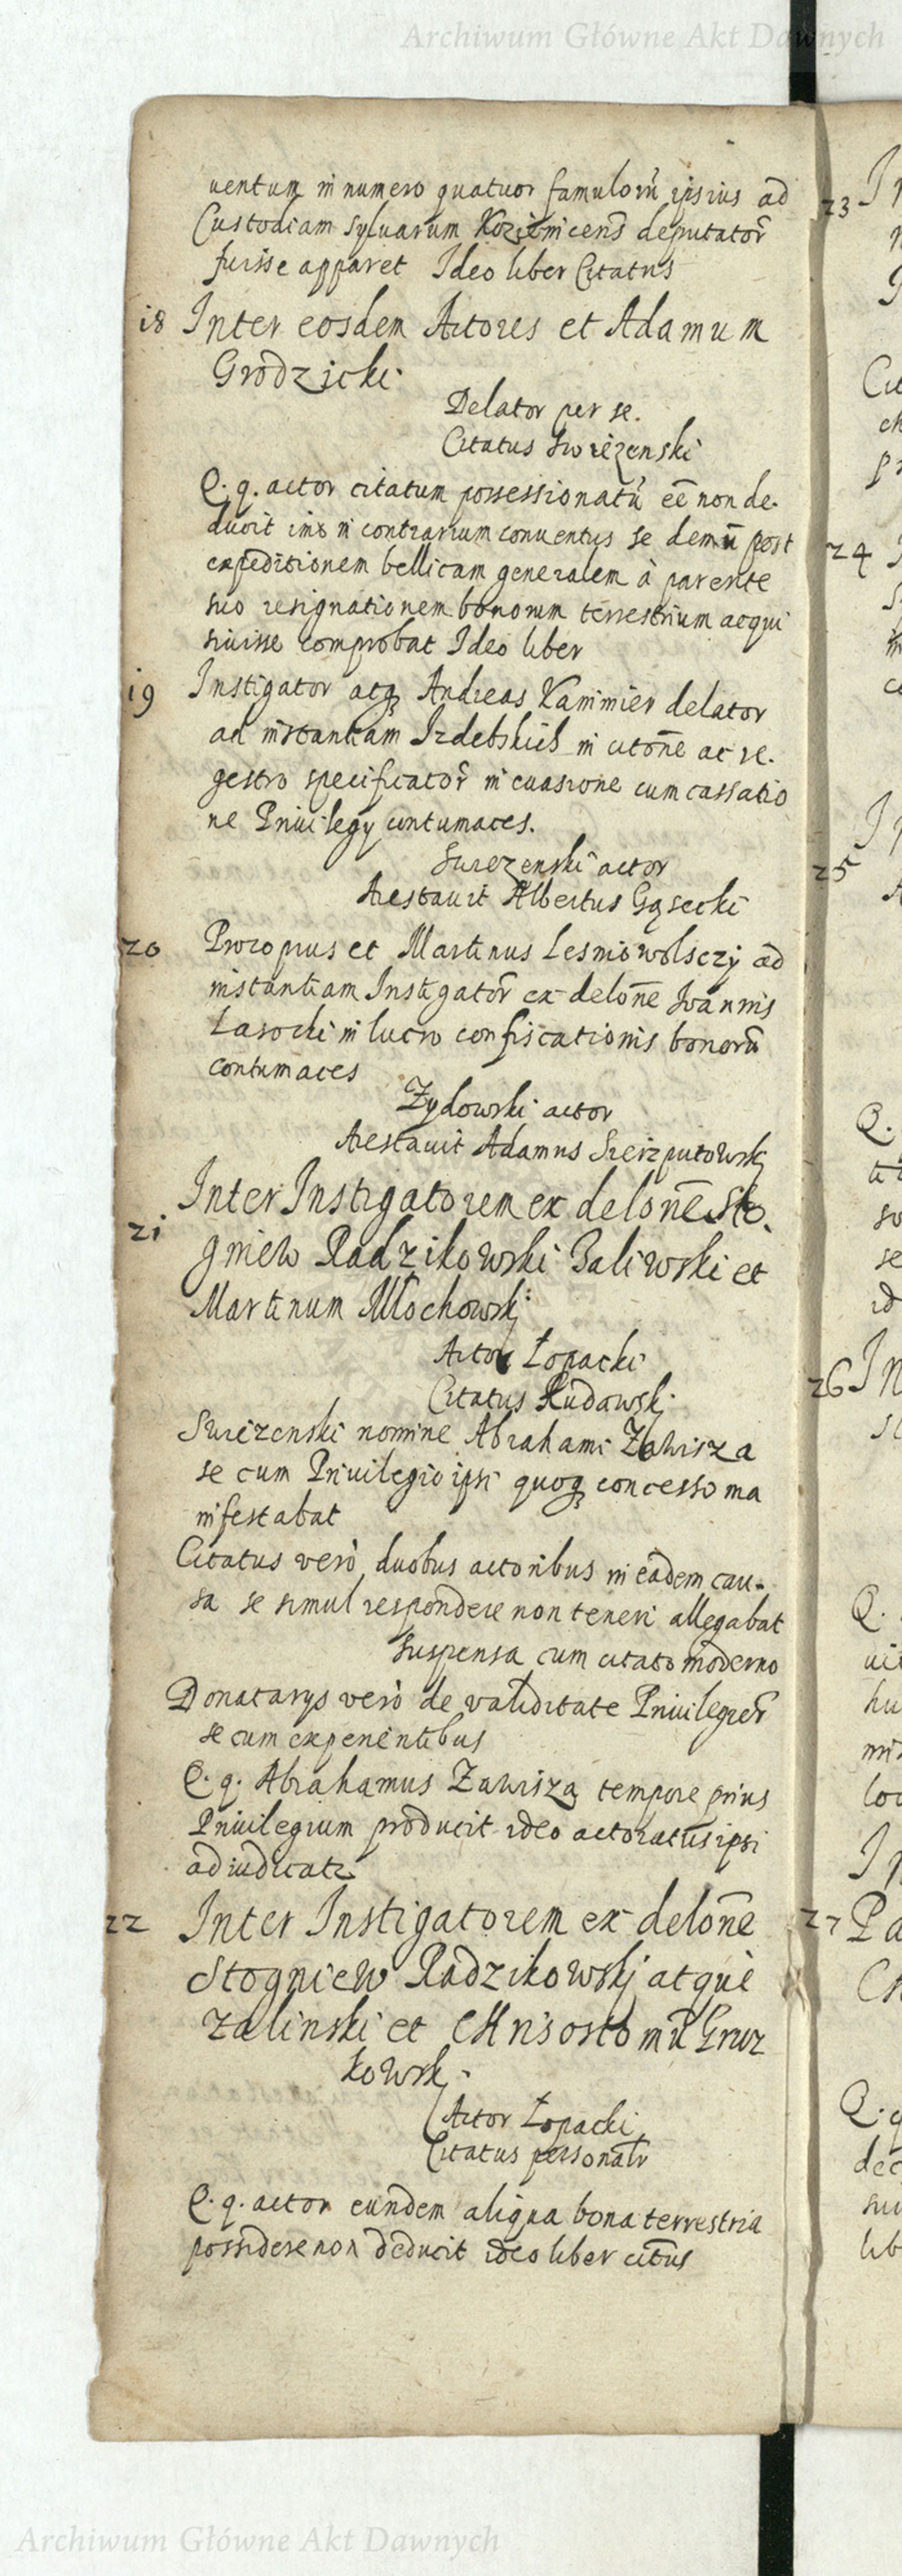 Archiwum Główne Akt Dawnych
uentum in numero quatuor famulorũ ipsius ad
Custodiam syluarum Kozienicens̃ deputator̃
fuisse apparet Ideo liber Citatus
18 Inter eosdem Actores et Adamum
Grodzicki
Delator per se.
Citatus Swiezenski
Q. q. actor citatum possessionatũ eẽ non de-
ducit imo in contrarium conuentus se demũ post
expeditionem bellicam generalem à parente
suo resignationem bonorum terrestrium acqui
siuisse comprobat Ideo liber
19 Instigator atq Andreas Kammier delator
ad instantiam Izdebskich in citoñe ac re-
gestro specificator̃ in euasione cum cassatio
ne Priuilegy contumaces.
Swiezenski actor
Arestauit Albertus Gąsecki
20 Procopius et Martinus Lesniowolsczy ad
instantiam Instigator̃ ex deloñe Joannis
Lasocki in lucro confiscationis bonorũ
contumaces
Zydowski actor
Arestauit Adamus Sierzputowskj
21 Inter Instigatorem ex deloñe Sto-
gniew Radzikowski Zaliwski et
Martinum Młochowskj
Actor Łopacki
Citatus Rudawskj
Swiezenski nomine Abrahami Zawisza
se cum Priuilegio ipsi quoq concesso ma
nifestabat
Citatus verò duobus actoribus in eadem cau-
sa se simul respondere non teneri allegabat
Suspensa cum citato moderno
Donatarys verò de validitate Priuilegior̃
se cum experientibus
Q. q. Abrahamus Zawisza tempore prius
Priuilegium producit ideo actoratus ipsi
adiudicatr
22 Inter Instigatorem ex deloñe
Stogniew Radzikowskj atque
Zalinski et CHrisostomũ Gruz
kowskj
Actor Łopacki
Citatus personalr
Q. q. actor eundem aliqua bona terrestria
possidere non deducit ideo liber citus
23
24
25
26
27
Archiwum Główne Akt Dawnych